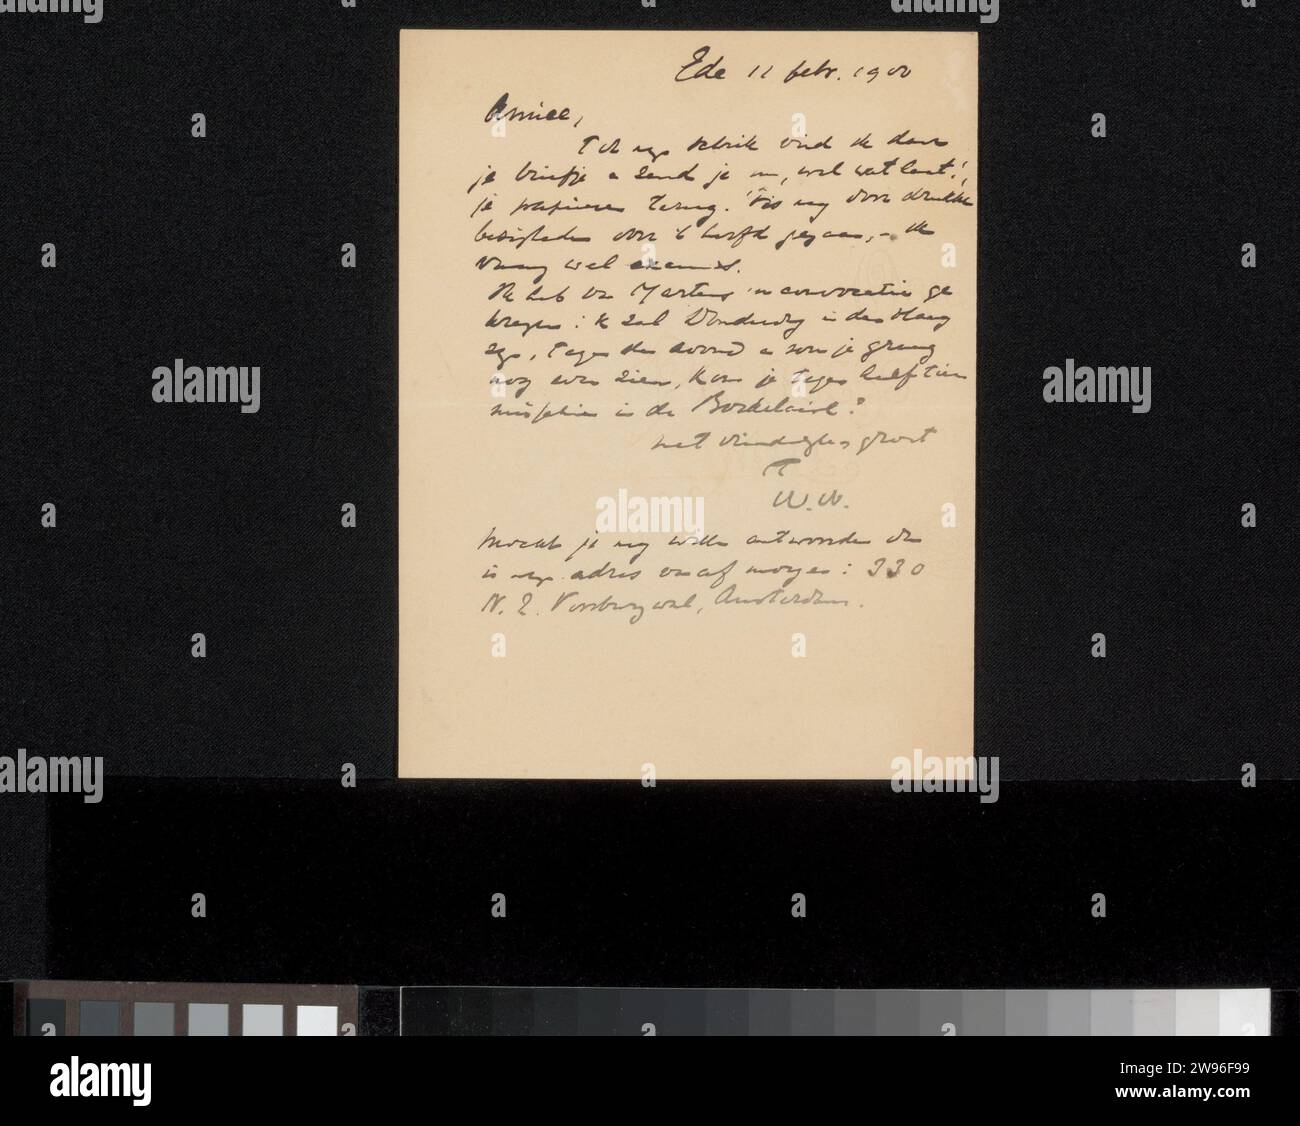 Ede 11 febr. 1900
Amice,
Tot mijn schrik vind ik daar
je briefje en zend je nu, wel wat laat!,
je papieren terug. 't Is mij door drukke
bezigheden over 't hoofd gegaan, - ik
vraag wel excuus.
Ik heb van Martens 'n convocatie ge
kregen: ik zal Donderdag in den Haag
zijn, tegen den avond en zou je graag
nog even zien, kan je tegen half tien
misschien in de
met vriendelijken groet
W.W.
Mocht je nog willen antwoorden dan
is mijn adres vanaf morgen: 330
N.Z. Voorburgwal, Amsterdam.
alamy
Image ID: 2W96F99
www.alamy.com